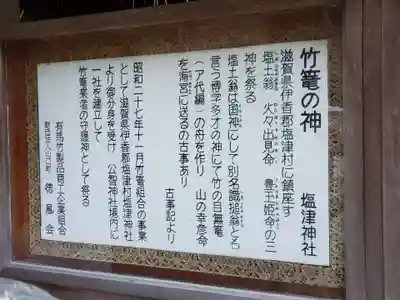 竹篭の神　塩津神社
滋賀県伊香郡塩津村に鎮座す
塩土翁　火々出見命　豊玉姫命の三
神を祭る
塩土翁は国神にして別名識搥翁とも
言う博学多才の神にて竹の目無篭
(ア代編)の舟を作り　山の幸彦命
を海宮に送るの古事あり
古事記より
昭和二十七年十一月竹篭組合の事業
として滋賀県伊香郡塩津村塩津神社
より御分身を受け　公智神社境内に
一社を建立して
竹篭業者の守護神として祭る
有馬竹製品商工企業組合
徳風会